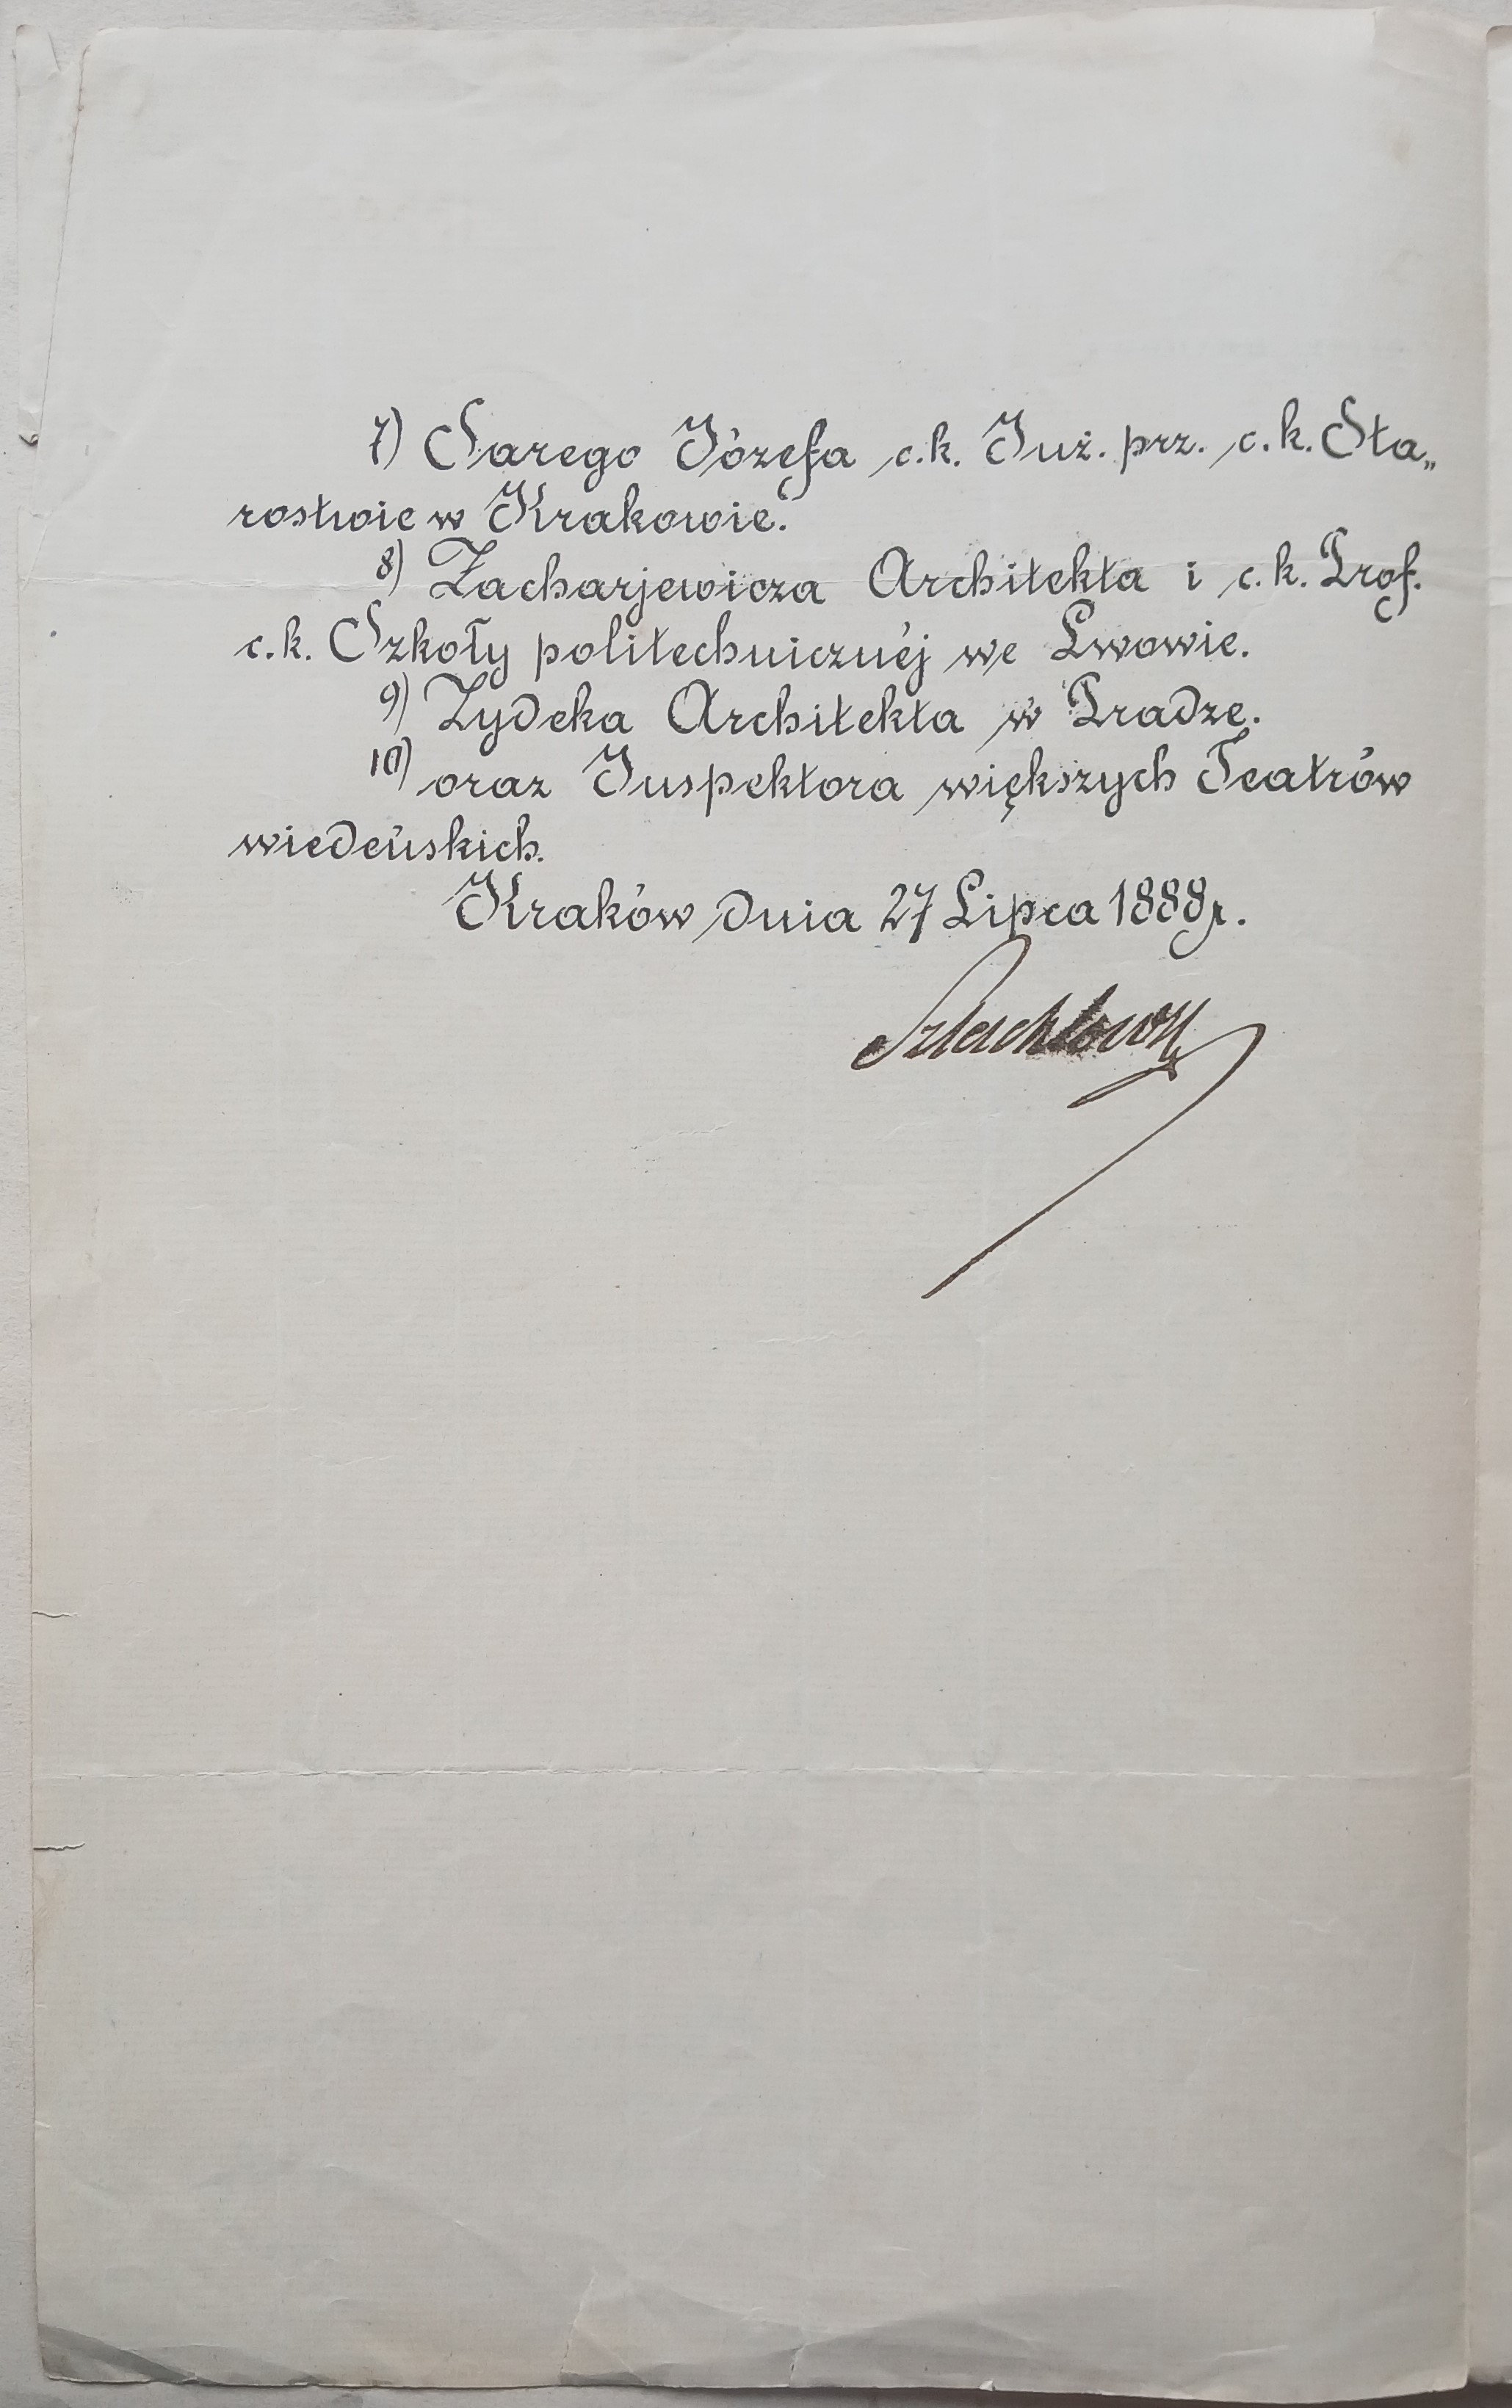 7) Sarego Józefa c.k. Inż. prz. c.k. Sta„
rostwie w Krakowie.
8) Zacharjewicza Architekta i c.k. Prof.
c.k. Szkoły politechnicznéj we Lwowie.
9) Zydeka Architekta w Pradze.
10) oraz Inspektora większych Teatrów
wiedeńskich.
Kraków dnia 27 Lipca 1888 r.
Szlachtowski